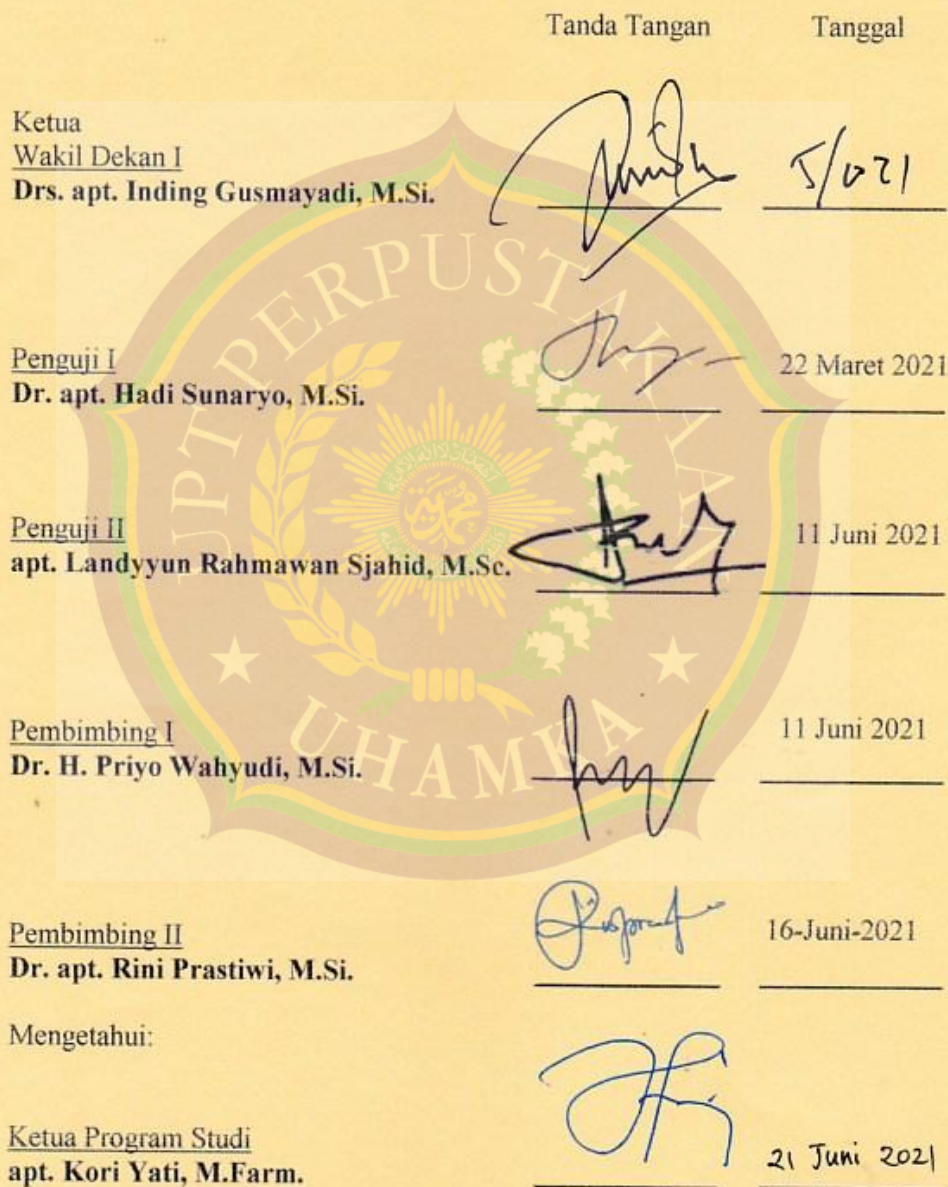 Tanda Tangan Tanggal
Ketua
Wakil Dekan I
Drs. apt. Inding Gusmayadi, M.Si.
Penguji I
Dr. apt. Hadi Sunaryo, M.Si.
22 Maret 2021
Penguji II
apt. Landyyun Rahmawan Sjahid, M.Sc.
11 Juni 2021
Pembimbing I
Dr. H. Priyo Wahyudi, M.Si.
11 Juni 2021
Pembimbing II
Dr. apt. Rini Prastiwi, M.Si.
16-Juni-2021
Mengetahui:
Ketua Program Studi
apt. Kori Yati, M.Farm.
21 Juni 2021
UPT PERPUSTAKAAN
UHAMKA